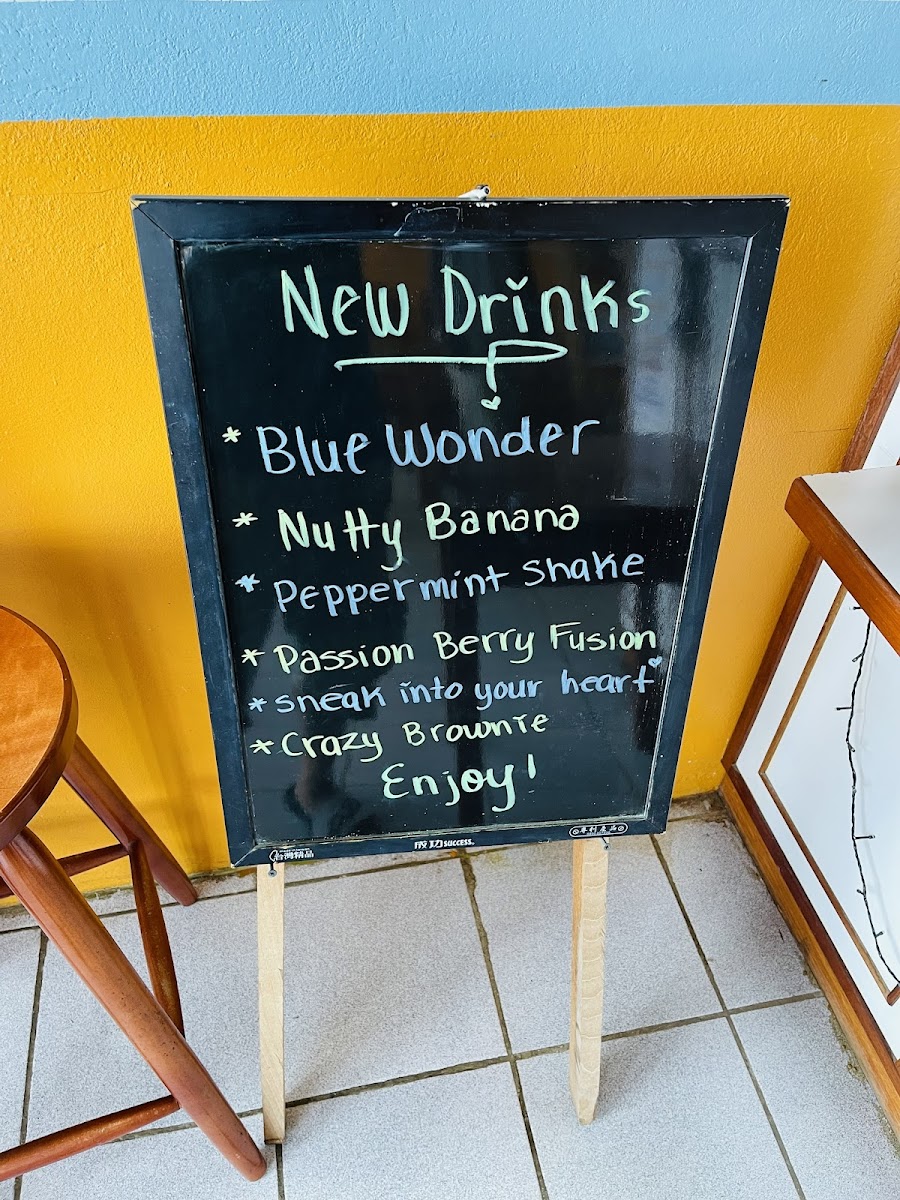 New Drinks
* Blue Wonder
* Nutty Banana
* Peppermint Shake
* Passion Berry Fusion
* sneak into your heart
* Crazy Brownie
Enjoy!
台灣精品
成功 success.
專利產品